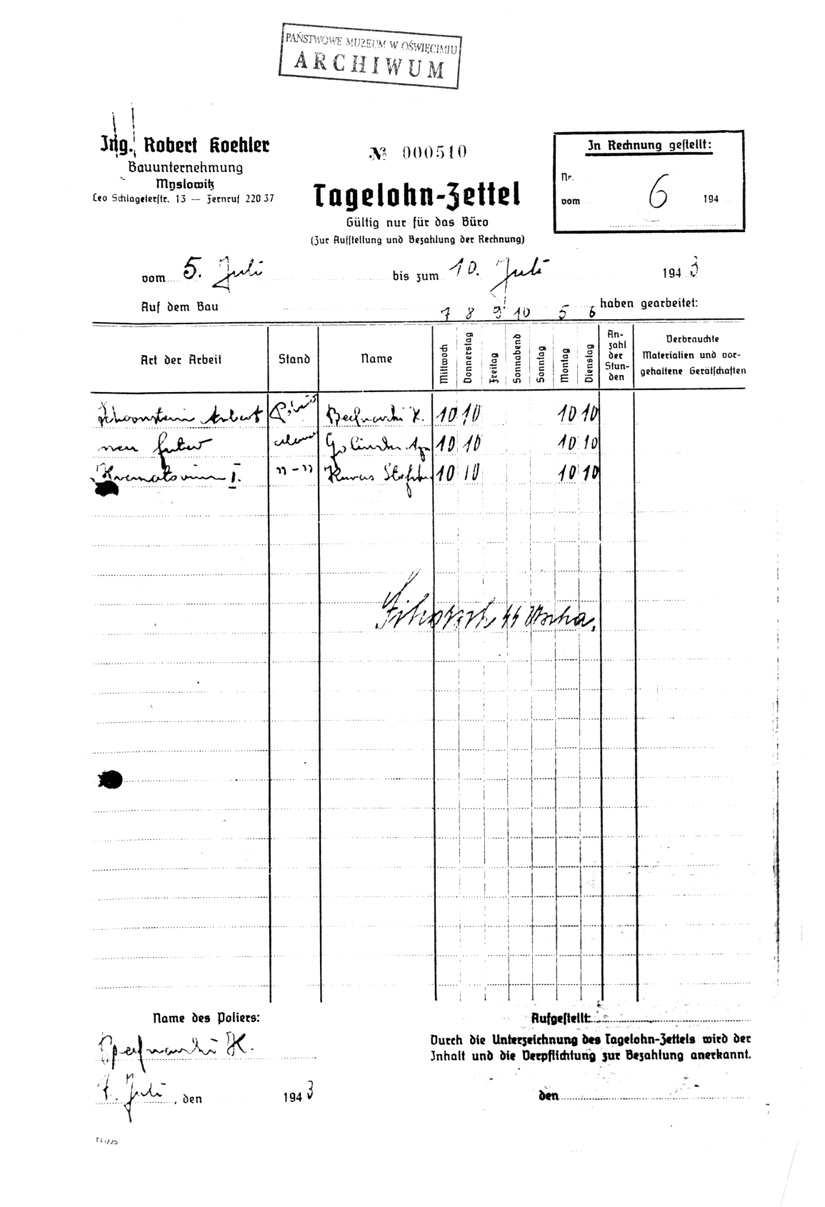 PAŃSTWOWE MUZEUM W OŚWIĘCIMIU
ARCHIWUM
Ing. Robert Koehler
Bauunternehmung
Myslowitz
Leo Schlageterstr. 13 — Fernruf 220 37
№ 000510
Tagelohn-Zettel
Gültig nur für das Büro
(Zur Aufstellung und Bezahlung der Rechnung)
In Rechnung gestellt:
Nr.
vom 6 194
vom 5. Juli bis zum 10. Juli 1943
Auf dem Bau haben gearbeitet:
7 8 9 10 5 6
Art der Arbeit Stand Name Mittwoch Donnerstag Freitag Sonnabend Sonntag Montag Dienstag An-zahl der Stun-den Verbrauchte Materialien und vor-gehaltene Gerätschaften
Schornstein K. 10 10 10 10
neu 10 10 10 10
Krematorium I. "-" 10 10 10 10
SS Uscha.
Name des Poliers:
K.
7. Juli, den 1943
Aufgestellt:
Durch die Unterzeichnung des Tagelohn-Zettels wird der
Inhalt und die Verpflichtung zur Bezahlung anerkannt.
den